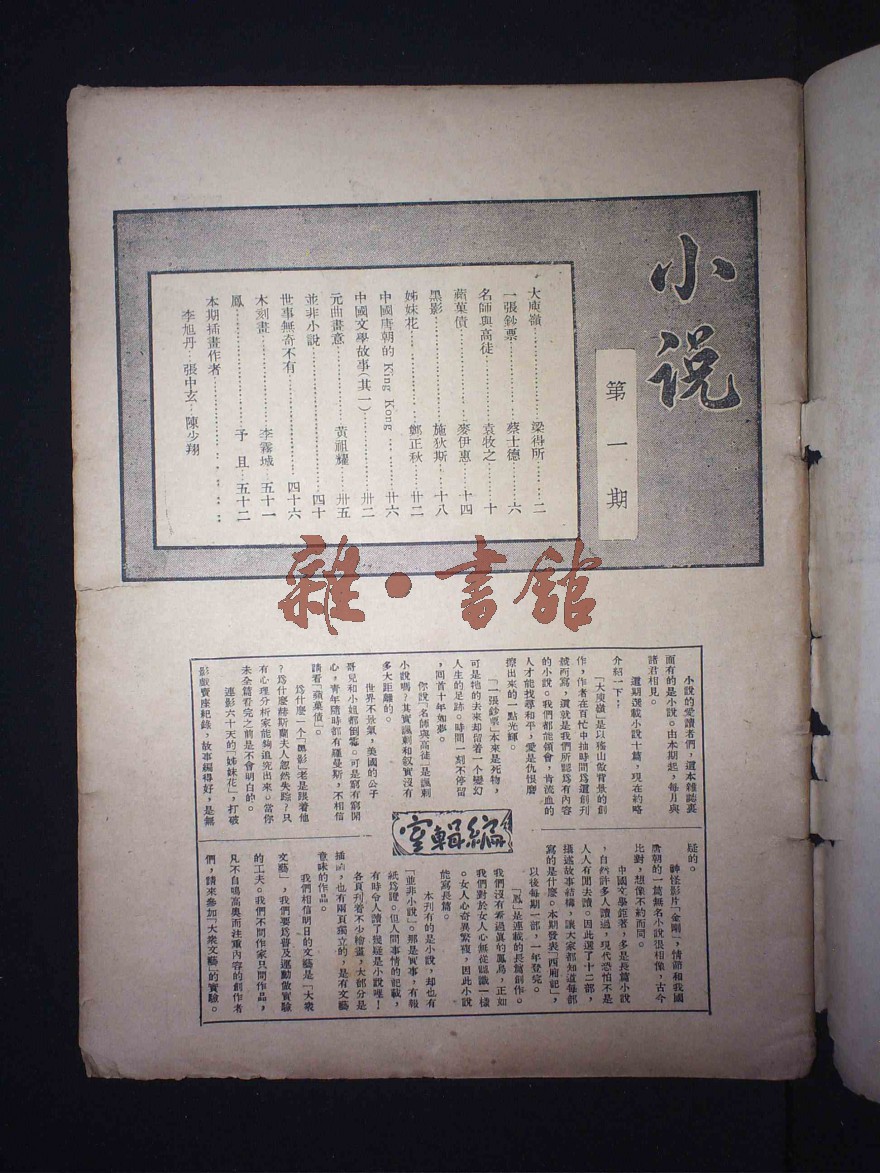 小说
第一期
大庾嶺……………梁得所……二
一張鈔票…………蔡士德……六
名師與高徒………袁牧之……十
蘋菓債……………麥伊惠…十四
黑影………………施狄斯…十八
姊妹花……………鄭正秋…廿二
中國唐朝的 King Kong………廿六
中國文學故事(其一)…………卅二
元曲畫意…………黃祖耀…卅五
並非小說……………………四十
世事無奇不有………………四十六
木刻畫……………李霧城…五十一
鳳…………………予且…五十二
本期插畫作者……………
李旭丹…張中玄…陳少翔
雜·書館
編輯室
小說的愛讀者們,這本雜誌裏
面有的是小說。由本期起,每月與
諸君相見。
這期選載小說十篇,現在約略
介紹一下;
「大庾嶺」是以瑤山做背景的創
作,作者在百忙中抽時間爲這創刊
號而寫,這就是我們所認爲有內容
的小說。我們都能領會,肯流血的
人才能找尋和平,愛是仇恨磨
擦出來的一點光輝。
「一張鈔票」本來是死物,
可是牠的去來却留着一个變幻
人生的足跡。時間一刻不停留
,回首十年如夢。
你說「名師與高徒」是諷刺
小說嗎?其實諷刺和叙實沒有
多大距離的。
世界不景氣,美國的公子
哥兒和小姐都倒霉。可是窮有窮開
心,青年隨時都有羅曼斯,不相信
請看「蘋菓債」。
爲什麼一个「黑影」老是跟着他
?爲什麼赫斯蘭夫人忽然失踪?只
有心理分析家能夠追究出來。當你
未全篇看完之前是不會明白的。
連影六十天的「姊妹花」,打破
影戲賣座紀錄,故事編得好,是無
疑的。
神怪影片「金剛」,情節和我國
唐朝的一篇無名小說張相像,古今
比對,想像不約而同。
中國文學鉅著,多是長篇小說
,自然許多人讀過,現代恐怕不是
人人有閒去讀。因此選了十二部,
描述故事結構,讓大家都知道每部
寫的是什麼。本期發表「西廂記」,
以後每期一部,一年登完。
「鳳」是連載的長篇創作。
我們沒有看過眞的鳳鳥,正如
我們對於女人心無從認識一樣
。女人心奇異繁複,因此小說
能寫長篇。
本刊有的是小說,却也有
「並非小說」。那是實事,有報
紙爲證。但人間事情的記載,
有時令人讀了幾疑是小說哩!
各頁刊着不少繪畫,大部分是
插画,也有兩頁獨立的,是有文藝
意味的作品。
我們相信明日的文藝是「大衆
文藝」,我們要爲普及運動做實驗
的工夫。我們不問作家只問作品,
凡不自鳴高奧而注重內容的創作者
們,請來參加「大衆文藝」的實驗。